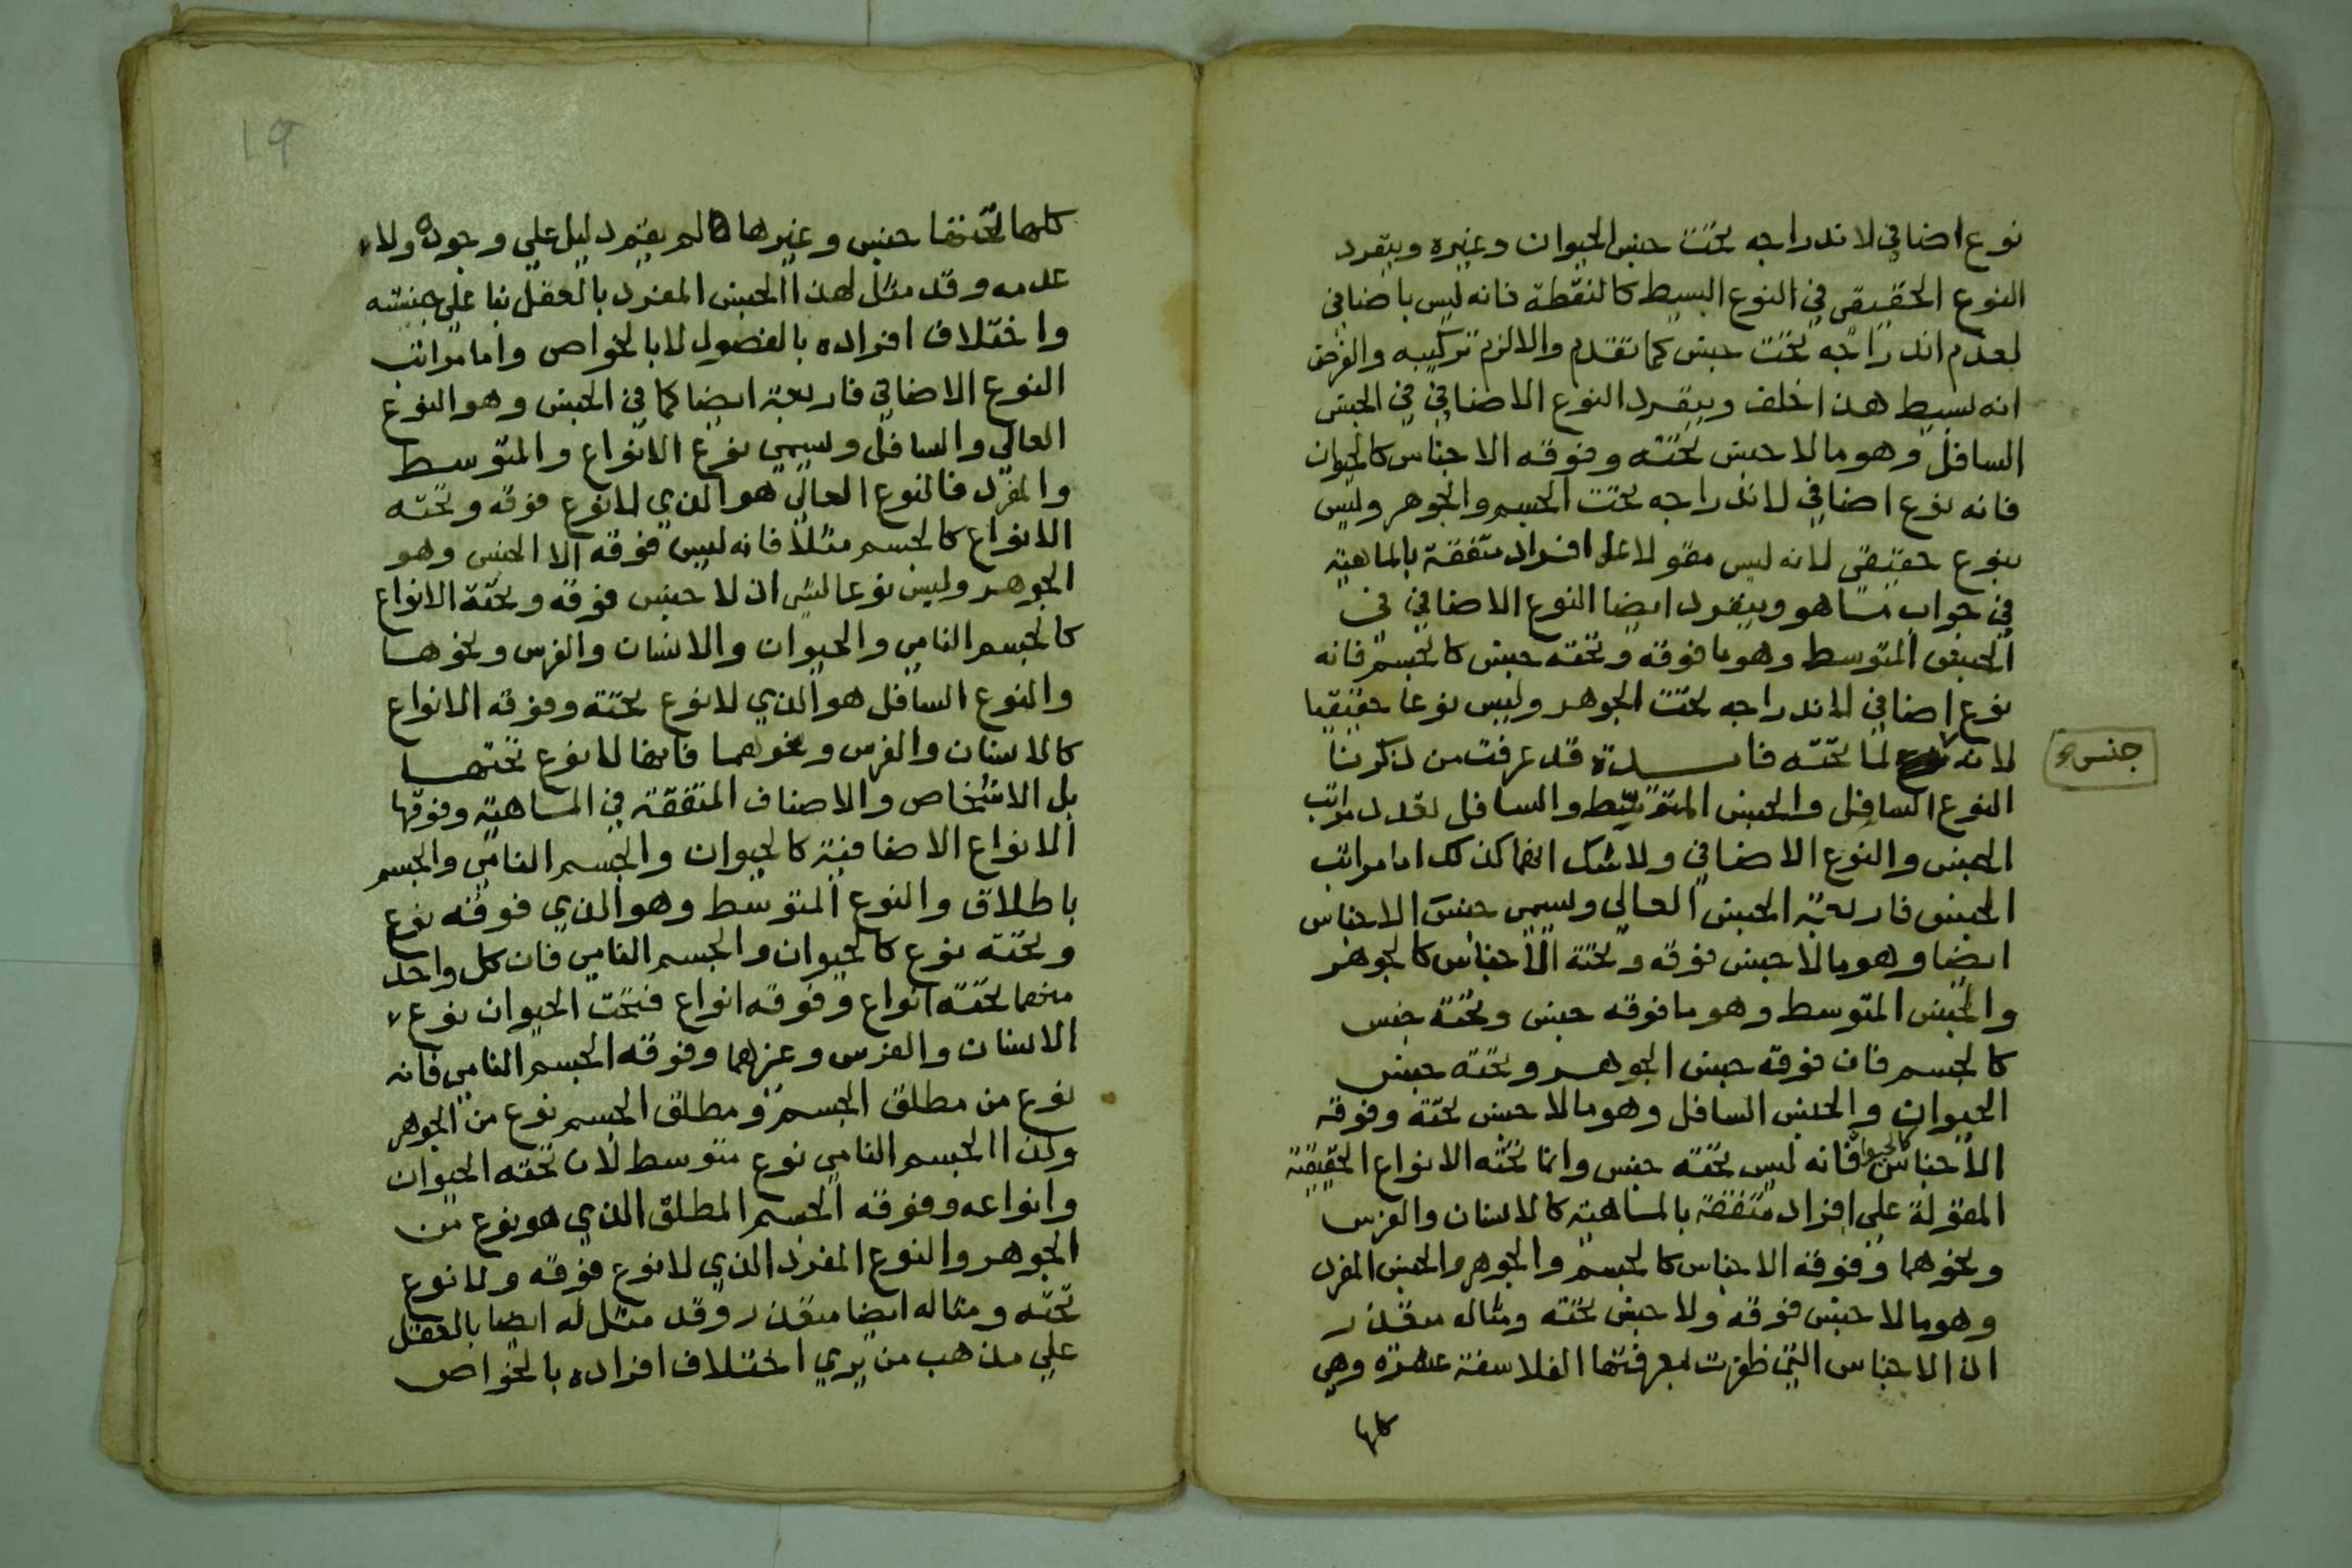 نوع اضافي لاندراجه تحت جنس الحيوان وغيره وينفرد
النوع الحقيقي في النوع البسيط كالنقطة فانه ليس باضافي
لعدم اندراجه تحت جنس كما تقدم والا لزم تركيبه والفرض
انه بسيط هذا خلف وينفرد النوع الاضافي في الجنس
السافل وهو مالا جنس تحته وفوقه الاجناس كالحيوان
فانه نوع اضافي لاندراجه تحت الجسم والجوهر وليس
بنوع حقيقي لانه ليس مقولا على افراد متفقة بالماهية
في جواب ماهو وينفرد ايضا النوع الاضافي في
الجنس المتوسط وهو ما فوقه وتحته جنس كالجسم فانه
نوع اضافي لاندراجه تحت الجوهر وليس نوعا حقيقيا
لانه لما تحته فايدة قد عرفت من ذكرنا
جنس
النوع السافل والجنس المتوسط والسافل تعدد مراتب
الجنس والنوع الاضافي ولا شك انها كذلك اما مراتب
الجنس فاربعة الجنس العالي ويسمى جنس الاجناس
ايضا وهو مالا جنس فوقه وتحته الاجناس كالجوهر
والجنس المتوسط وهو ما فوقه جنس وتحته جنس
كالجسم فان فوقه جنس الجوهر وتحته جنس
الحيوان والجنس السافل وهو مالا جنس تحته وفوقه
الاجناس كالحيوان فانه ليس تحته جنس وانما تحته الانواع الحقيقية
المقولة على افراد متفقة بالماهية كالانسان والفرس
ونحوهما وفوقه الاجناس كالجسم والجوهر والجنس المفرد
وهو مالا جنس فوقه ولا جنس تحته ومثاله متعذر
اذ الاجناس التي ظفرت بمعرفتها الفلاسفة عشرة وهي
كلها
19
كلها تحتها جنس وغيرها مما لم يقم دليل علي وجوده ولا
عدمه وقد مثل لهذا الجنس المفرد بالعقل بنا علي جنسيته
واختلاف افراده بالفصول لا بالخواص واما مراتب
النوع الاضافي فاربعة ايضا كما في الجنس وهو النوع
العالي والسافل ويسمي نوع الانواع والمتوسط
والمفرد فالنوع العالي هو الذي لا نوع فوقه وتحته
الانواع كالجسم مثلا فانه ليس فوقه الا الجنس وهو
الجوهر وليس نوعا لشي اذ لا جنس فوقه وتحته الانواع
كالجسم النامي والحيوان والانسان والفرس ونحوها
والنوع السافل هو الذي لا نوع تحته وفوقه الانواع
كالانسان والفرس ونحوهما فانها لا نوع تحتها
بل الاشخاص والاصناف المتفقة في الماهية وفوقها
الانواع الاضافية كالحيوان والجسم النامي والجسم
باطلاق والنوع المتوسط وهو الذي فوقه نوع
وتحته نوع كالحيوان والجسم النامي فان كل واحد
منهما تحته انواع وفوقه انواع فتحت الحيوان نوع
الانسان والفرس وغيرهما وفوقه الجسم النامي فانه
نوع من مطلق الجسم ومطلق الجسم نوع من الجوهر
وكذا الجسم النامي نوع متوسط لان تحته الحيوان
وانواعه وفوقه الجسم المطلق الذي هو نوع من
الجوهر والنوع المفرد الذي لا نوع فوقه ولا نوع
تحته ومثاله ايضا متعذر وقد مثل له ايضا بالعقل
علي مذهب من يري اختلاف افراده بالخواص